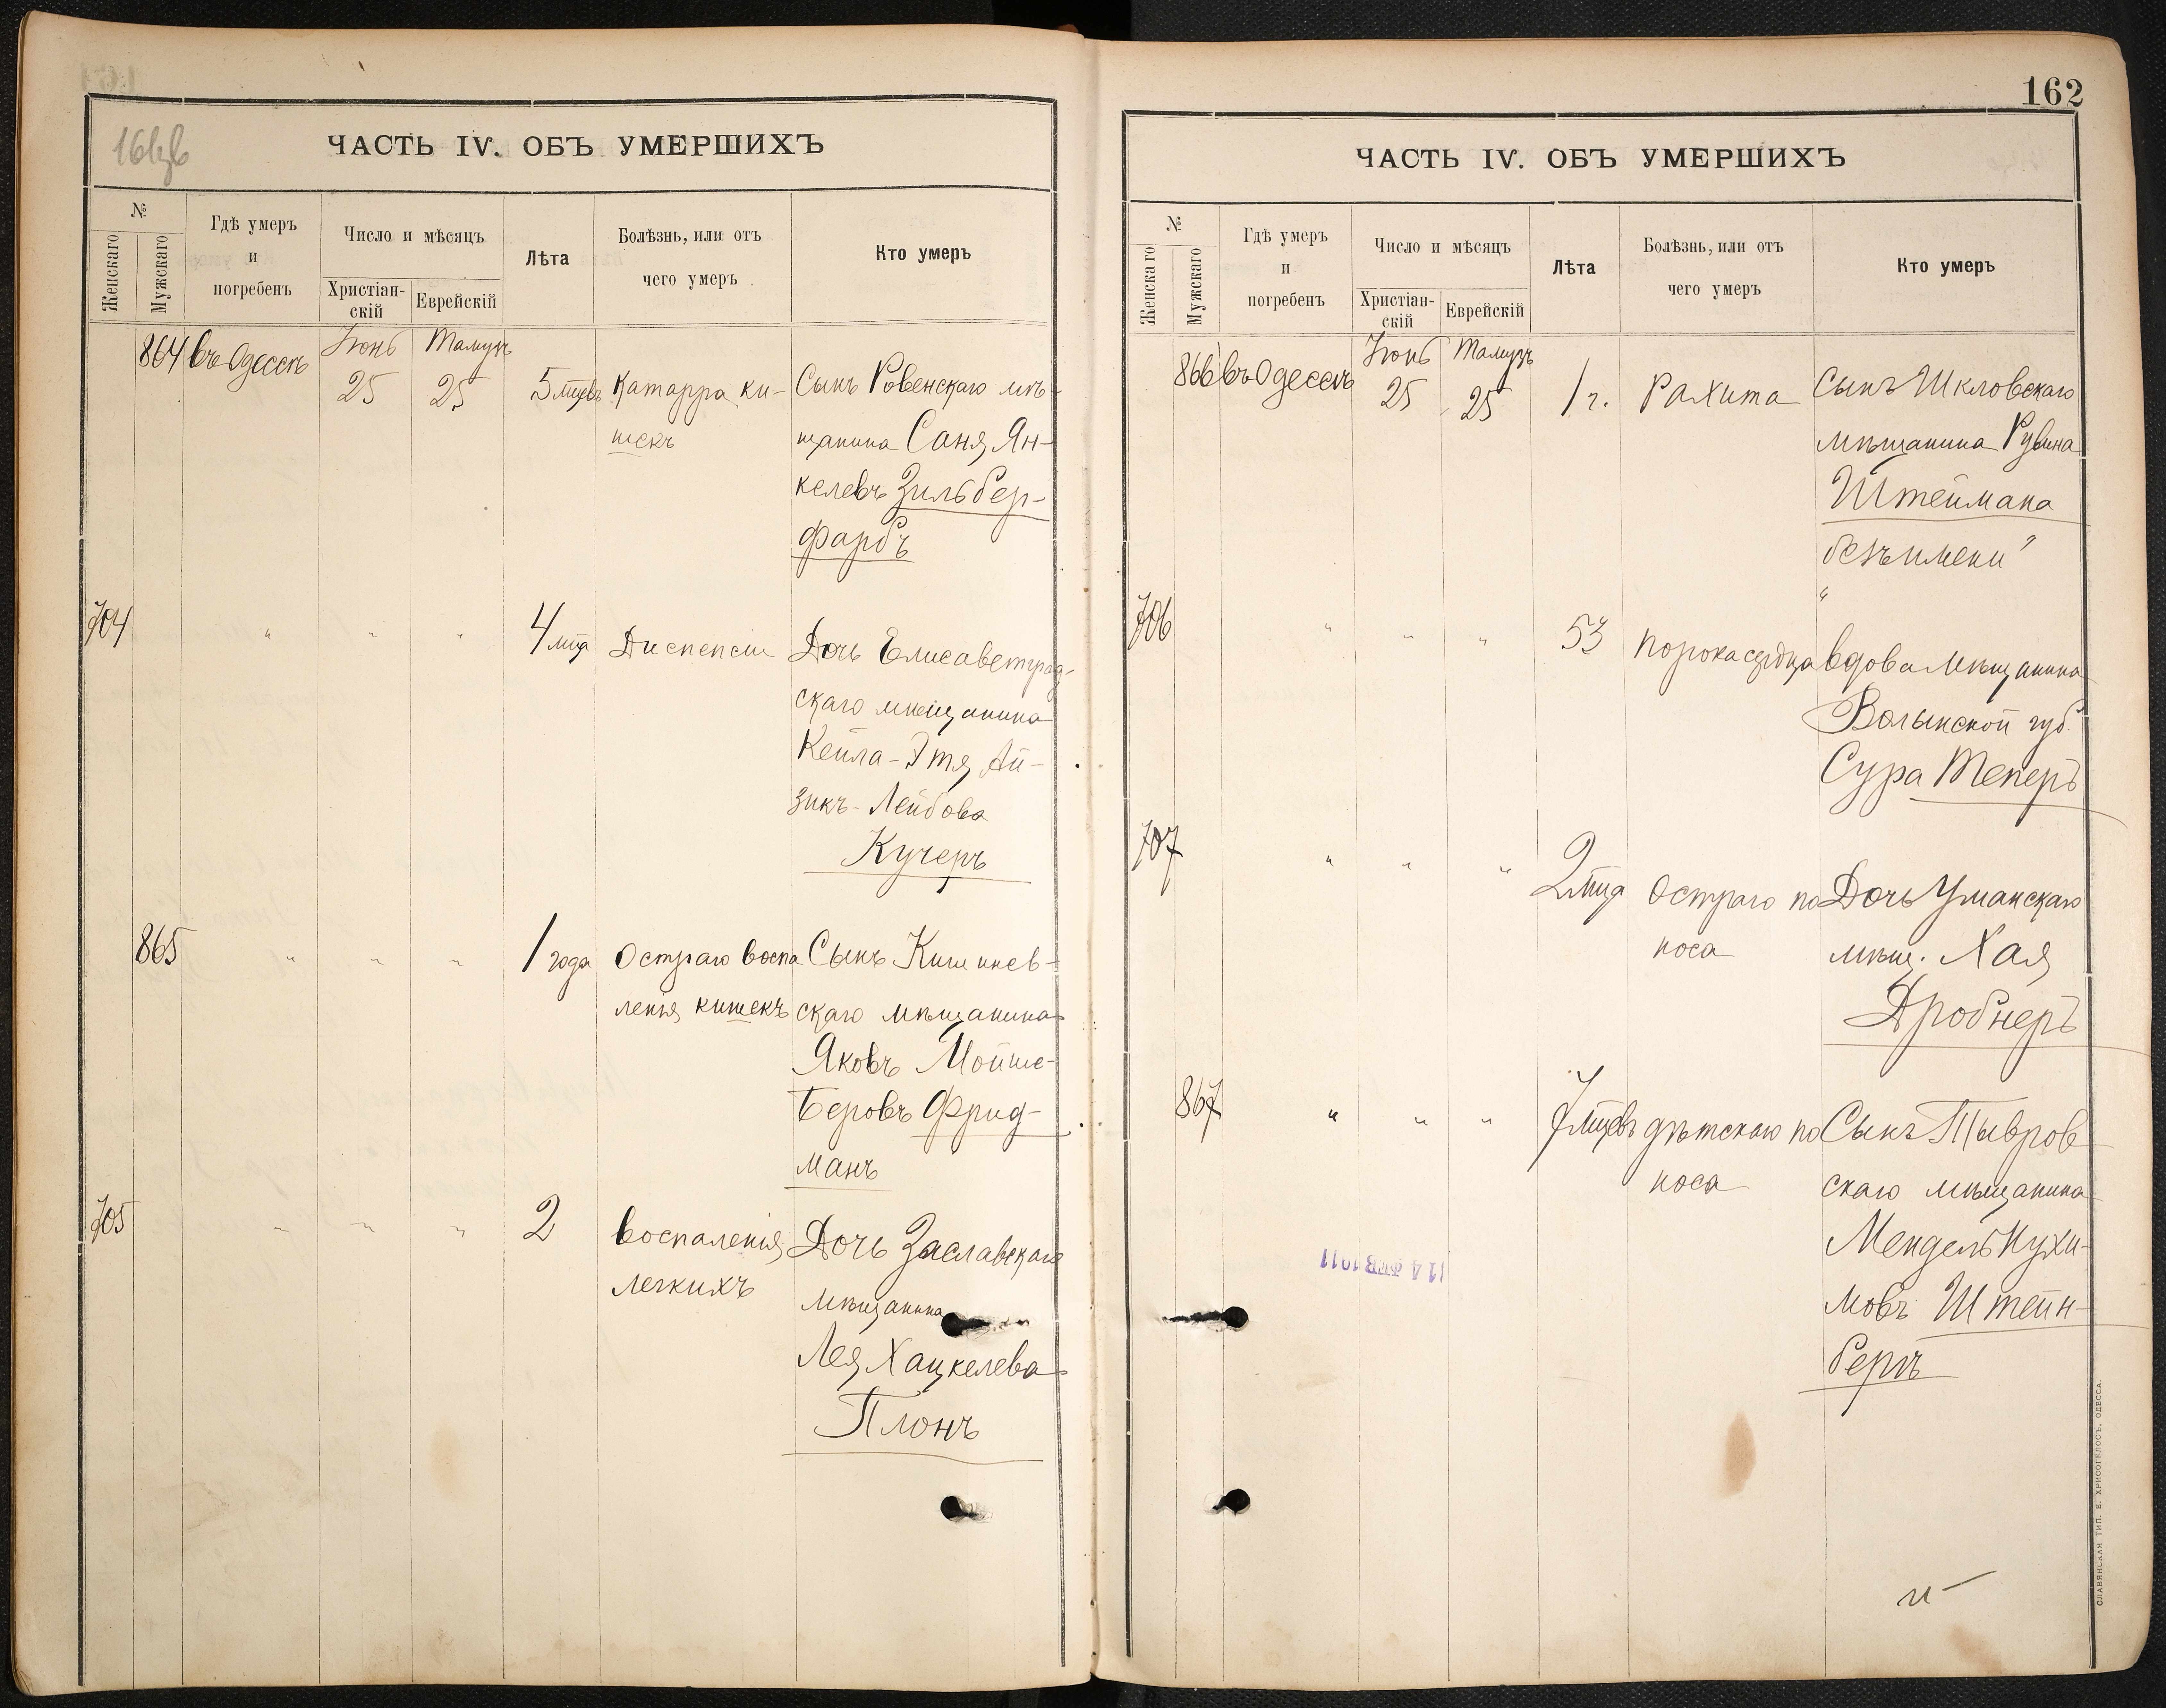 ЧАСТЬ IV. ОБЪ УМЕРШИХЪ
№
Женскаго
Мужскаго
Гдѣ умеръ
и
погребенъ
Число и мѣсяцъ
Христіан-
скій
Еврейскій
Лѣта
Болѣзнь, или отъ
чего умеръ
Кто умеръ
864 въ Одессѣ Іюнь Тамузъ
25 25 5 мцевъ Катарра ки- Сынъ Ровенскаго мѣ-
шекъ щанина Саня Ян-
келевъ Зильбер-
фарбъ
704 " " " 4 мца Диспепсіи Дочь Елисаветград-
скаго мѣщанина
Кейла-Этя Ай-
зикъ-Лейбова
Кучеръ
865 " " " 1 года Остраго воспа Сынъ Кишинев-
ленія кишекъ скаго мѣщанина
Яковъ Мойше-
Беровъ Фрид-
манъ
705 " " " 2 воспаленія Дочь Заславскаго
легкихъ мѣщанина
Лея Хацкелева
Плонъ
162
ЧАСТЬ IV. ОБЪ УМЕРШИХЪ
№
Женскаго
Мужскаго
Гдѣ умеръ
и
погребенъ
Число и мѣсяцъ
Христіан-
скій
Еврейскій
Лѣта
Болѣзнь, или отъ
чего умеръ
Кто умеръ
866 въ Одессѣ Іюнь Тамузъ
25 25 1 г. Рахита Сынъ Шкловскаго
мѣщанина Рувина
Штеймана
безъ имени
706 " " " 53 порока сердца вдова мѣщанина
Волынской губ.
Сура Теперъ
707 " " " 2 мца Остраго по Дочь Уманскаго
носа мѣщ. Хая
Дробнеръ
867 " " " 7 мцевъ дѣтскаго по Сынъ Тывров
носа скаго мѣщанина
Мендель Нухи-
мовъ Штейн-
бергъ
14 ФЕВ 1911
СЛАВЯНСКАЯ ТИП. Е. ХРИСОГЕЛОСЪ, ОДЕССА.